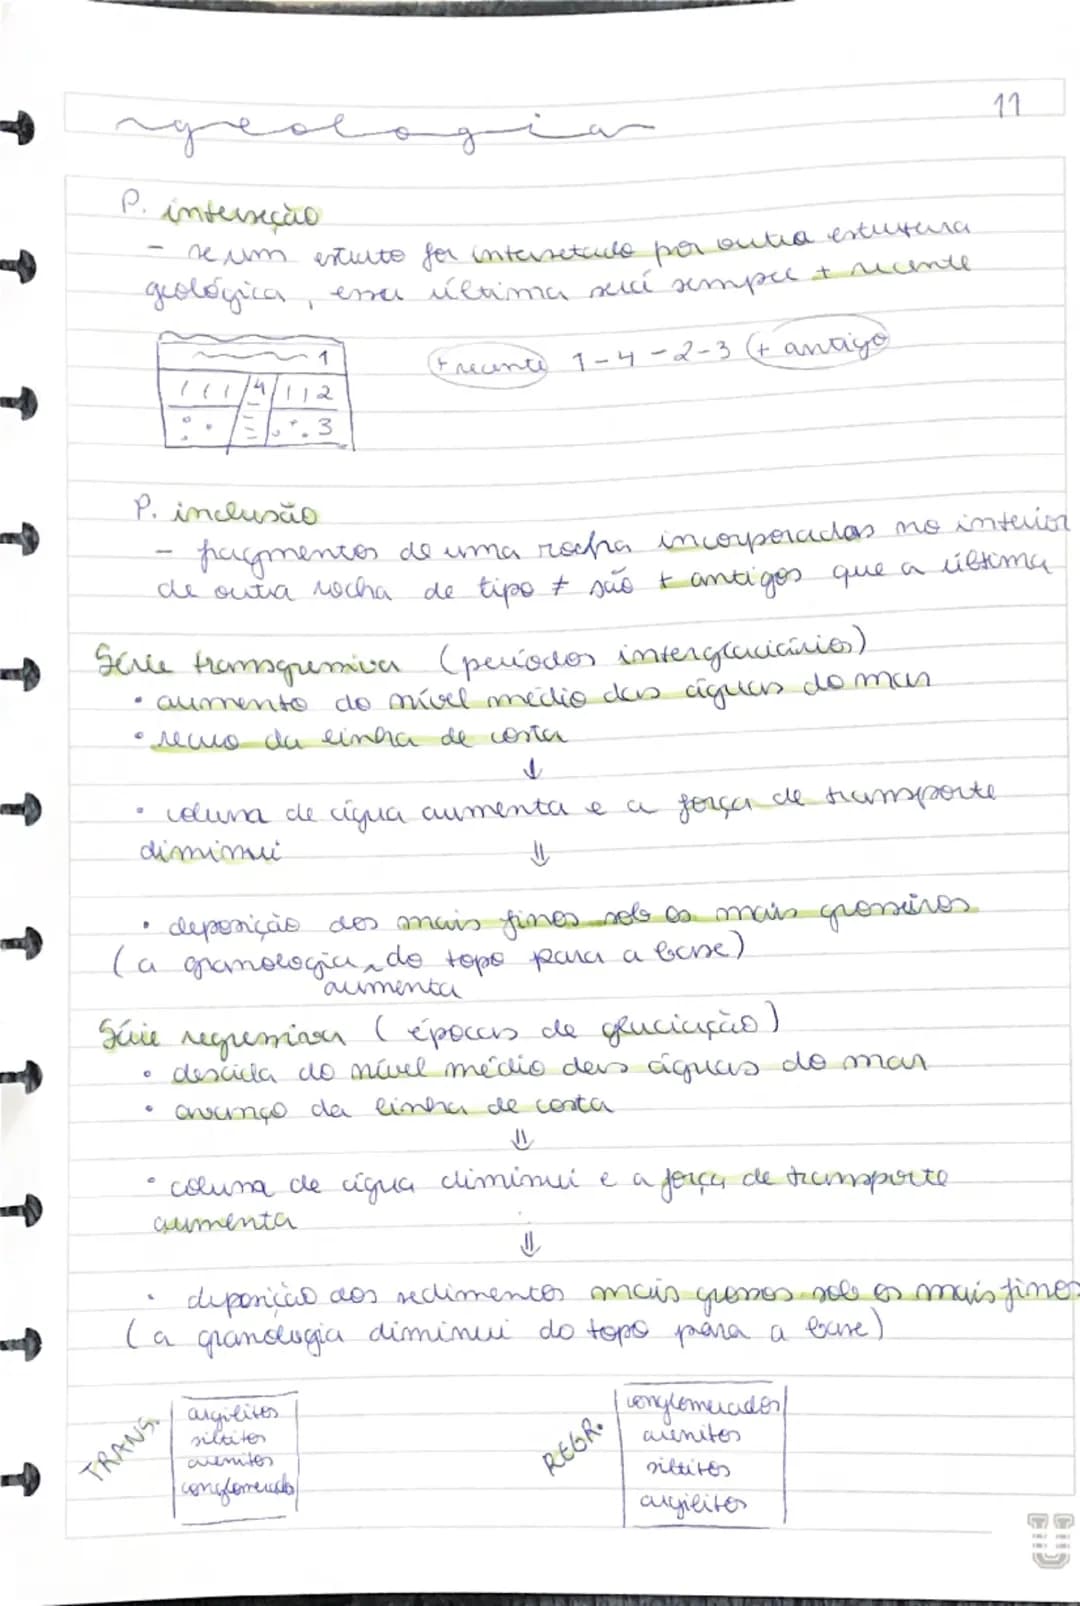 geologia
11
P. interseção
- se um estrato for intersetado por outra estrutura
geológica, essa última será sempre + recente
1
4
2
3
+ recente 1-4-2-3 (+ antigo
P. inclusão
- fragmentos de uma rocha incorporadas no interior
de outra rocha de tipo ≠ são + antigos que a última
Série transgressiva (períodos interglaciários)
• aumento do nível médio das águas do mar
• recuo da linha de costa
↓
• coluna de água aumenta e a força de transporte
diminui
⇓
• deposição dos mais finos sob os mais grosseiros
(a granologia do topo para a base)
aumenta
Série regressiva (épocas de glaciação)
• descida do nível médio das águas do mar
• avanço da linha de costa
⇓
• coluna de água diminui e a força de transporte
aumenta
⇓
• deposição dos sedimentos mais grossos sob os mais finos
(a granologia diminui do topo para a base)
TRANS.
argilitos
siltitos
arenitos
conglomerado
REGR.
conglomerados
arenitos
siltitos
argilitos
U